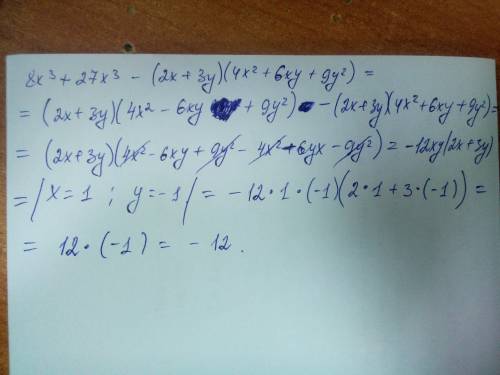 8x³ + 27x³ - (2x + 3y)(4x² + 6xy + 9y²) =
= (2x + 3y)(4x² - 6xy + 9y²) - (2x + 3y)(4x² + 6xy + 9y²) =
= (2x + 3y)(4x² - 6xy + 9y² - 4x² + 6yx - 9y²) = -12xy(2x + 3y)
= / x = 1 ; y = -1 / = -12 · 1 · (-1)(2 · 1 + 3 · (-1)) =
= 12 · (-1) = - 12 .